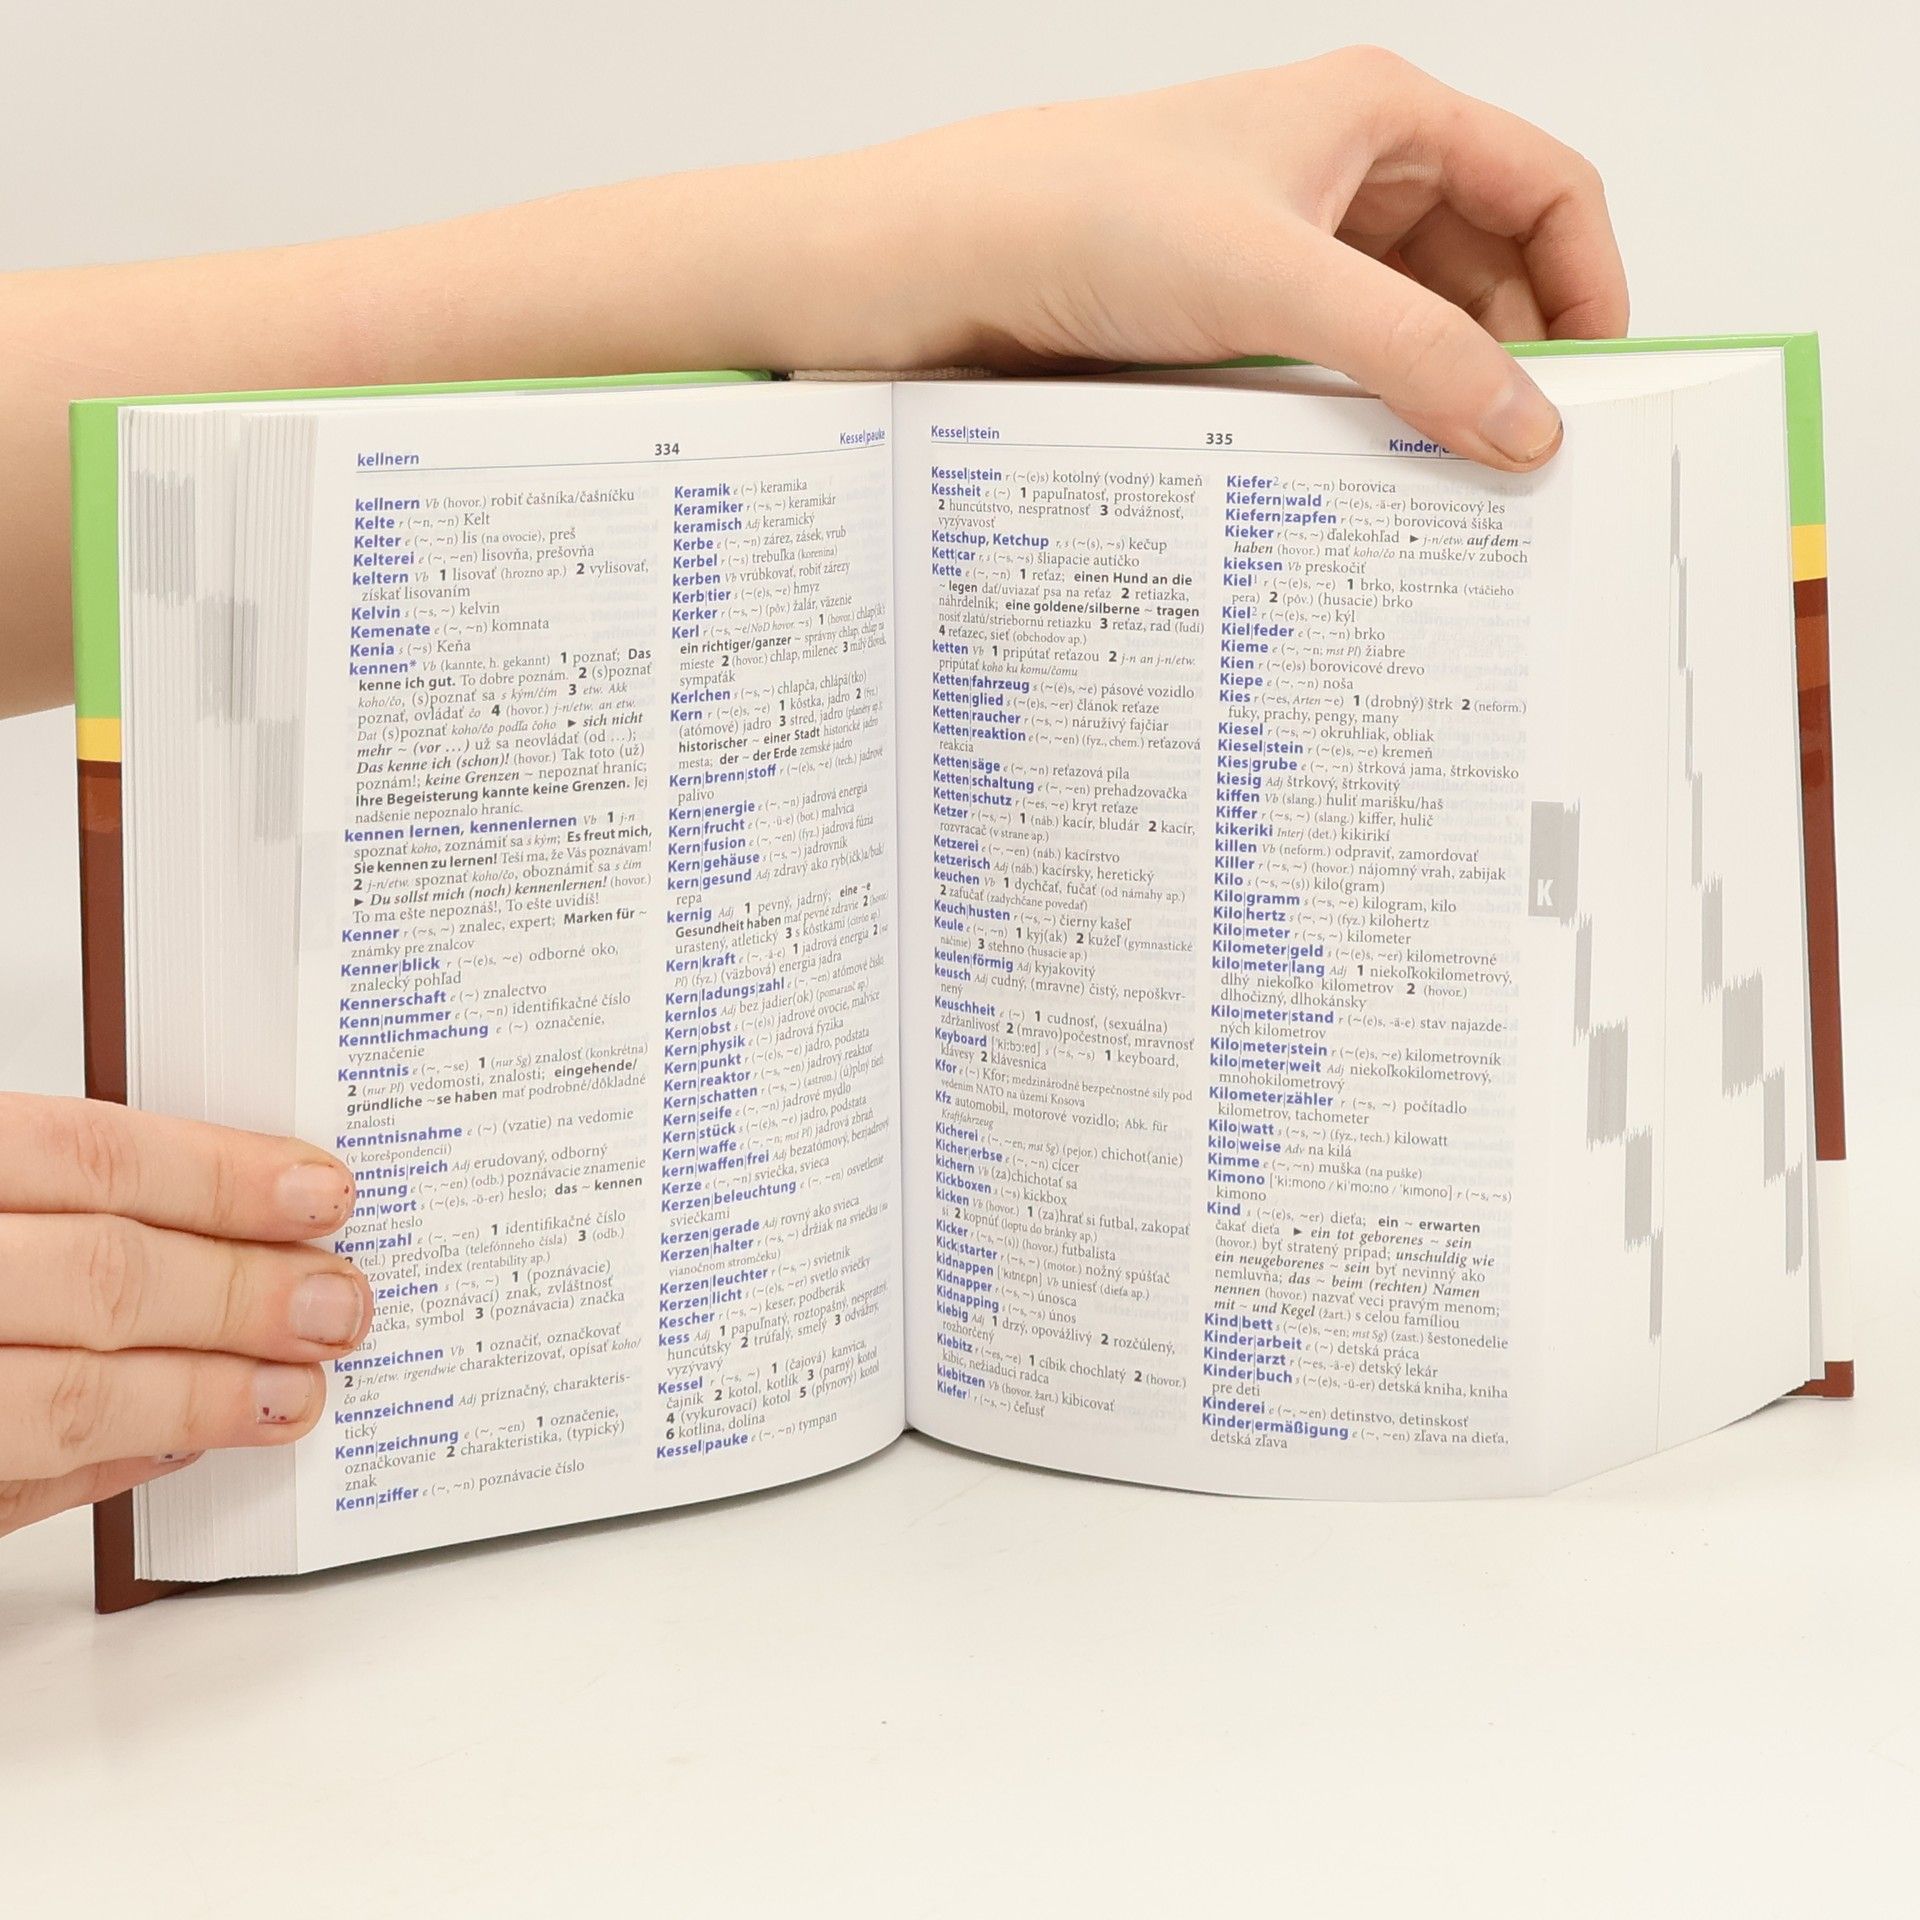 kellnern
334
Kessel|pauke
kellnern Vb (hovor.) robiť čašníka/čašníčku
Kelte r (~n, ~n) Kelt
Kelter e (~, ~n) lis (na ovocie), preš
Kelterei e (~, ~en) lisovňa, prešovňa
keltern Vb 1 lisovať (hrozno ap.) 2 vylisovať,
získať lisovaním
Kelvin s (~s, ~) kelvin
Kemenate e (~, ~n) komnata
Kenia s (~s) Keňa
kennen* Vb (kannte, h. gekannt) 1 poznať; Das
kenne ich gut. To dobre poznám. 2 (s)poznať
koho/čo, (s)poznať sa s kým/čím 3 etw. Akk
poznať, ovládať čo 4 (hovor.) j-n/etw. an etw.
Dat (s)poznať koho/čo podľa čoho ► sich nicht
mehr ~ (vor …) už sa neovládať (od …);
Das kenne ich (schon)! (hovor.) Tak toto (už)
poznám!; keine Grenzen ~ nepoznať hraníc;
Ihre Begeisterung kannte keine Grenzen. Jej
nadšenie nepoznalo hraníc.
kennen lernen, kennenlernen Vb 1 j-n
spoznať koho, zoznámiť sa s kým; Es freut mich,
Sie kennen zu lernen! Teší ma, že Vás poznávam!
2 j-n/etw. spoznať koho/čo, oboznámiť sa s čím
► Du sollst mich (noch) kennenlernen! (hovor.)
To ma ešte nepoznáš!, To ešte uvidíš!
Kenner r (~s, ~) znalec, expert; Marken für ~
známky pre znalcov
Kenner|blick r (~(e)s, ~e) odborné oko,
znalecký pohľad
Kennerschaft e (~) znalectvo
Kenn|nummer e (~, ~n) identifikačné číslo
Kenntlichmachung e (~) označenie,
vyznačenie
Kenntnis e (~, ~se) 1 (nur Sg) znalosť (konkrétna)
2 (nur Pl) vedomosti, znalosti; eingehende/
gründliche ~se haben mať podrobné/dôkladné
znalosti
Kenntnisnahme e (~) (vzatie) na vedomie
(v korešpondencii)
nntnis|reich Adj erudovaný, odborný
nnung e (~, ~en) (odb.) poznávacie znamenie
nn|wort s (~(e)s, -ö-er) heslo; das ~ kennen
poznať heslo
Kenn|zahl e (~, ~en) 1 identifikačné číslo
2 (tel.) predvoľba (telefónneho čísla) 3 (odb.)
zovateľ, index (rentability ap.)
zeichen s (~s, ~) 1 (poznávacie)
menie, (poznávací) znak, zvláštnosť
načka, symbol 3 (poznávacia) značka
ata)
kennzeichnen Vb 1 označiť, označkovať
2 j-n/etw. irgendwie charakterizovať, opísať koho/
čo ako
kennzeichnend Adj príznačný, charakteris-
tický
Kenn|zeichnung e (~, ~en) 1 označenie,
označkovanie 2 charakteristika, (typický)
znak
Kenn|ziffer e (~, ~n) poznávacie číslo
Keramik e (~) keramika
Keramiker r (~s, ~) keramikár
keramisch Adj keramický
Kerbe e (~, ~n) zárez, zásek, vrub
Kerbel r (~s) trebuľka (korenina)
kerben Vb vrúbkovať, robiť zárezy
Kerb|tier s (~(e)s, ~e) hmyz
Kerker r (~s, ~) (pôv.) žalár, väzenie
Kerl r (~s, ~e/NoD hovor. ~s) 1 (hovor.) chlap(ík);
ein richtiger/ganzer ~ správny chlap, chlap na
mieste 2 (hovor.) chlap, milenec 3 milý človek,
sympaťák
Kerlchen s (~s, ~) chlapča, chlápä(tko)
Kern r (~(e)s, ~e) 1 kôstka, jadro 2 (fyz.)
(atómové) jadro 3 stred, jadro (planéty ap.);
historischer ~ einer Stadt historické jadro
mesta; der ~ der Erde zemské jadro
Kern|brenn|stoff r (~(e)s, ~e) (tech.) jadrové
palivo
Kern|energie e (~, ~n) jadrová energia
Kern|frucht e (~, -ü-e) (bot.) malvica
Kern|fusion e (~, ~en) (fyz.) jadrová fúzia
Kern|gehäuse s (~s, ~) jadrovník
kern|gesund Adj zdravý ako ryb(ičk)a/buk/
repa
kernig Adj 1 pevný, jadrný; eine ~e
Gesundheit haben mať pevné zdravie 2 (hovor.)
urastený, atletický 3 s kôstkami (citrón ap.)
Kern|kraft e (~, -ä-e) 1 jadrová energia 2 (nur
Pl) (fyz.) (väzbová) energia jadra
Kern|ladungs|zahl e (~, ~en) atómové číslo
kernlos Adj bez jadier(ok) (pomaranč ap.)
Kern|obst s (~(e)s) jadrové ovocie, malvice
Kern|physik e (~) jadrová fyzika
Kern|punkt r (~(e)s, ~e) jadro, podstata
Kern|reaktor r (~s, ~en) jadrový reaktor
Kern|schatten r (~s, ~) (astron.) (ú)plný tieň
Kern|seife e (~, ~n) jadrové mydlo
Kern|stück s (~(e)s, ~e) jadro, podstata
Kern|waffe e (~, ~n; mst Pl) jadrová zbraň
kern|waffen|frei Adj bezatómový, bezjadrový
Kerze e (~, ~n) sviečka, svieca
Kerzen|beleuchtung e (~, ~en) osvetlenie
sviečkami
kerzen|gerade Adj rovný ako svieca
Kerzen|halter r (~s, ~) držiak na sviečku (na
vianočnom stromčeku)
Kerzen|leuchter r (~s, ~) svietnik
Kerzen|licht s (~(e)s, ~er) svetlo sviečky
Kescher r (~s, ~) keser, podberák
kess Adj 1 papuľnatý, roztopašný, nespratný,
huncútsky 2 trúfalý, smelý 3 odvážny,
vyzývavý
Kessel r (~s, ~) 1 (čajová) kanvica,
čajník 2 kotol, kotlík 3 (parný) kotol
4 (vykurovací) kotol 5 (plynový) kotol
6 kotlina, dolina
Kessel|pauke e (~, ~n) tympan
Kessel|stein
335
Kinder|
Kessel|stein r (~(e)s) kotolný (vodný) kameň
Kessheit e (~) 1 papuľnatosť, prostorekosť
2 huncútstvo, nespratnosť 3 odvážnosť,
vyzývavosť
Ketschup, Ketchup r, s (~(s), ~s) kečup
Kett|car r, s (~s, ~s) šliapacie autíčko
Kette e (~, ~n) 1 reťaz; einen Hund an die
~ legen dať/uviazať psa na reťaz 2 retiazka,
náhrdelník; eine goldene/silberne ~ tragen
nosiť zlatú/striebornú retiazku 3 reťaz, rad (ľudí)
4 reťazec, sieť (obchodov ap.)
ketten Vb 1 pripútať reťazou 2 j-n an j-n/etw.
pripútať koho ku komu/čomu
Ketten|fahrzeug s (~(e)s, ~e) pásové vozidlo
Ketten|glied s (~(e)s, ~er) článok reťaze
Ketten|raucher r (~s, ~) náruživý fajčiar
Ketten|reaktion e (~, ~en) (fyz., chem.) reťazová
reakcia
Ketten|säge e (~, ~n) reťazová píla
Ketten|schaltung e (~, ~en) prehadzovačka
Ketten|schutz r (~es, ~e) kryt reťaze
Ketzer r (~s, ~) 1 (náb.) kacír, bludár 2 kacír,
rozvracač (v strane ap.)
Ketzerei e (~, ~en) (náb.) kacírstvo
ketzerisch Adj (náb.) kacírsky, heretický
keuchen Vb 1 dychčať, fučať (od námahy ap.)
2 zafučať (zadychčane povedať)
Keuch|husten r (~s, ~) čierny kašeľ
Keule e (~, ~n) 1 kyj(ak) 2 kužeľ (gymnastické
náčinie) 3 stehno (husacie ap.)
keulen|förmig Adj kyjakovitý
keusch Adj cudný, (mravne) čistý, nepoškvr-
nený
Keuschheit e (~) 1 cudnosť, (sexuálna)
zdržanlivosť 2 (mravo)počestnosť, mravnosť
Keyboard ['ki:bɔ:ɐd] s (~s, ~s) 1 keyboard,
klávesy 2 klávesnica
Kfor e (~) Kfor; medzinárodné bezpečnostné sily pod
vedením NATO na území Kosova
Kfz automobil, motorové vozidlo; Abk. für
Kraftfahrzeug
Kicherei e (~, ~en; mst Sg) (pejor.) chichot(anie)
Kicher|erbse e (~, ~n) cícer
kichern Vb (za)chichotať sa
Kickboxen s (~s) kickbox
kicken Vb (hovor.) 1 (za)hrať si futbal, zakopať
si 2 kopnúť (loptu do bránky ap.)
Kicker r (~s, ~(s)) (hovor.) futbalista
Kick|starter r (~s, ~) (motor.) nožný spúšťač
kidnappen ['kɪtnɛpn] Vb uniesť (dieťa ap.)
Kidnapper r (~s, ~) únosca
Kidnapping s (~s, ~s) únos
kiebig Adj 1 drzý, opovážlivý 2 rozčúlený,
rozhorčený
Kiebitz r (~es, ~e) 1 cíbik chochlatý 2 (hovor.)
kibic, nežiaduci radca
kiebitzen Vb (hovor. žart.) kibicovať
Kiefer¹ r (~s, ~) čeľusť
Kiefer² e (~, ~n) borovica
Kiefern|wald r (~(e)s, -ä-er) borovicový les
Kiefern|zapfen r (~s, ~) borovicová šiška
Kieker r (~s, ~) ďalekohľad ► j-n/etw. auf dem ~
haben (hovor.) mať koho/čo na muške/v zuboch
kieksen Vb preskočiť
Kiel¹ r (~(e)s, ~e) 1 brko, kostrnka (vtáčieho
pera) 2 (pôv.) (husacie) brko
Kiel² r (~(e)s, ~e) kýl
Kiel|feder e (~, ~n) brko
Kieme e (~, ~n; mst Pl) žiabre
Kien r (~(e)s) borovicové drevo
Kiepe e (~, ~n) noša
Kies r (~es, Arten ~e) 1 (drobný) štrk 2 (neform.)
fuky, prachy, pengy, many
Kiesel r (~s, ~) okruhliak, obliak
Kiesel|stein r (~(e)s, ~e) kremeň
Kies|grube e (~, ~n) štrková jama, štrkovisko
kiesig Adj štrkový, štrkovitý
kiffen Vb (slang.) huliť marišku/haš
Kiffer r (~s, ~) (slang.) kiffer, hulič
kikeriki Interj (det.) kikirikí
killen Vb (neform.) odpraviť, zamordovať
Killer r (~s, ~) (hovor.) nájomný vrah, zabijak
Kilo s (~s, ~(s)) kilo(gram)
Kilo|gramm s (~s, ~e) kilogram, kilo
Kilo|hertz s (~, ~) (fyz.) kilohertz
Kilo|meter r (~s, ~) kilometer
Kilometer|geld s (~(e)s, ~er) kilometrovné
kilo|meter|lang Adj 1 niekoľkokilometrový,
dlhý niekoľko kilometrov 2 (hovor.)
dlhočizný, dlhokánsky
Kilo|meter|stand r (~(e)s, -ä-e) stav najazde-
ných kilometrov
Kilo|meter|stein r (~(e)s, ~e) kilometrovník
kilo|meter|weit Adj niekoľkokilometrový,
mnohokilometrový
Kilometer|zähler r (~s, ~) počítadlo
kilometrov, tachometer
Kilo|watt s (~s, ~) (fyz., tech.) kilowatt
kilo|weise Adv na kilá
Kimme e (~, ~n) muška (na puške)
Kimono ['ki:mono / ki'mo:no / 'kimono] r (~s, ~s)
kimono
Kind s (~(e)s, ~er) dieťa; ein ~ erwarten
čakať dieťa ► ein tot geborenes ~ sein
(hovor.) byť stratený prípad; unschuldig wie
ein neugeborenes ~ sein byť nevinný ako
nemluvňa; das ~ beim (rechten) Namen
nennen (hovor.) nazvať veci pravým menom;
mit ~ und Kegel (žart.) s celou famíliou
Kind|bett s (~(e)s, ~en; mst Sg) (zast.) šestonedelie
Kinder|arbeit e (~) detská práca
Kinder|arzt r (~es, -ä-e) detský lekár
Kinder|buch s (~(e)s, -ü-er) detská kniha, kniha
pre deti
Kinderei e (~, ~en) detinstvo, detinskosť
Kinder|ermäßigung e (~, ~en) zľava na dieťa,
detská zľava
K